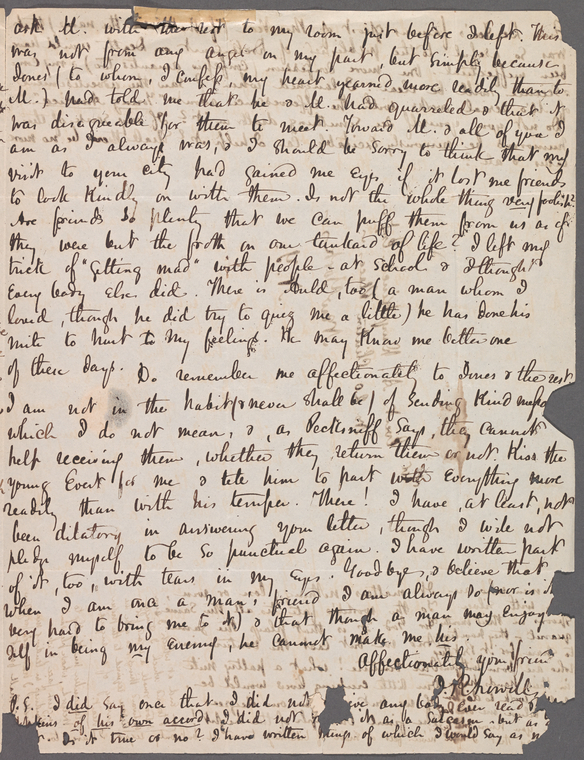 ask M. with the rest to my room just before I left. This
was not from any anger on my part, but simply because
Jones (to whom, I confess, my heart yearned more readily than to
M.) had told me that he & M. had quarreled & that it
was disagreeable for them to meet. Toward M. & all of you I
am as I always was, & I should be sorry to think that my
visit to your city had gained me eyes if it lost me friends
to look kindly on with them. Is not the whole thing very foolish?
Are friends so plenty that we can puff them from us as if
they were but the froth on our tankard of life? I left my
trick of "getting mad" with people at school & I thought
every body else did. There is Auld, too (a man whom I
loved, though he did try to quiz me a little) he has done his
mite to hurt my feelings. He may know me better one
of these days. Do remember me affectionately to Jones & the rest.
I am not in the habit (& never shall be) of sending kind
which I do not mean, &, as Pecksniff says, they cannot
help receiving them, whether they return them or not. Kiss the
young Evert for me & tell him to part with everything more
readily than with his temper. There! I have, at least, not
been dilatory in answering your letter, though I will not
pledge myself to be so punctual again. I have written part
of it, too, with tears in my eyes. Goodbye, & believe that
when I am once a man's friend I am always so (nor is it
very hard to bring me to it) & that though a man may enjoy
self in being my enemy, he cannot make me his.
Affectionately your friend
J. R. Lowell
P.S. I did say once that I did not any body ever read
of his own accord. I did not it as a sarcasm, but as
Is it true or no? I have written things of which I would say as